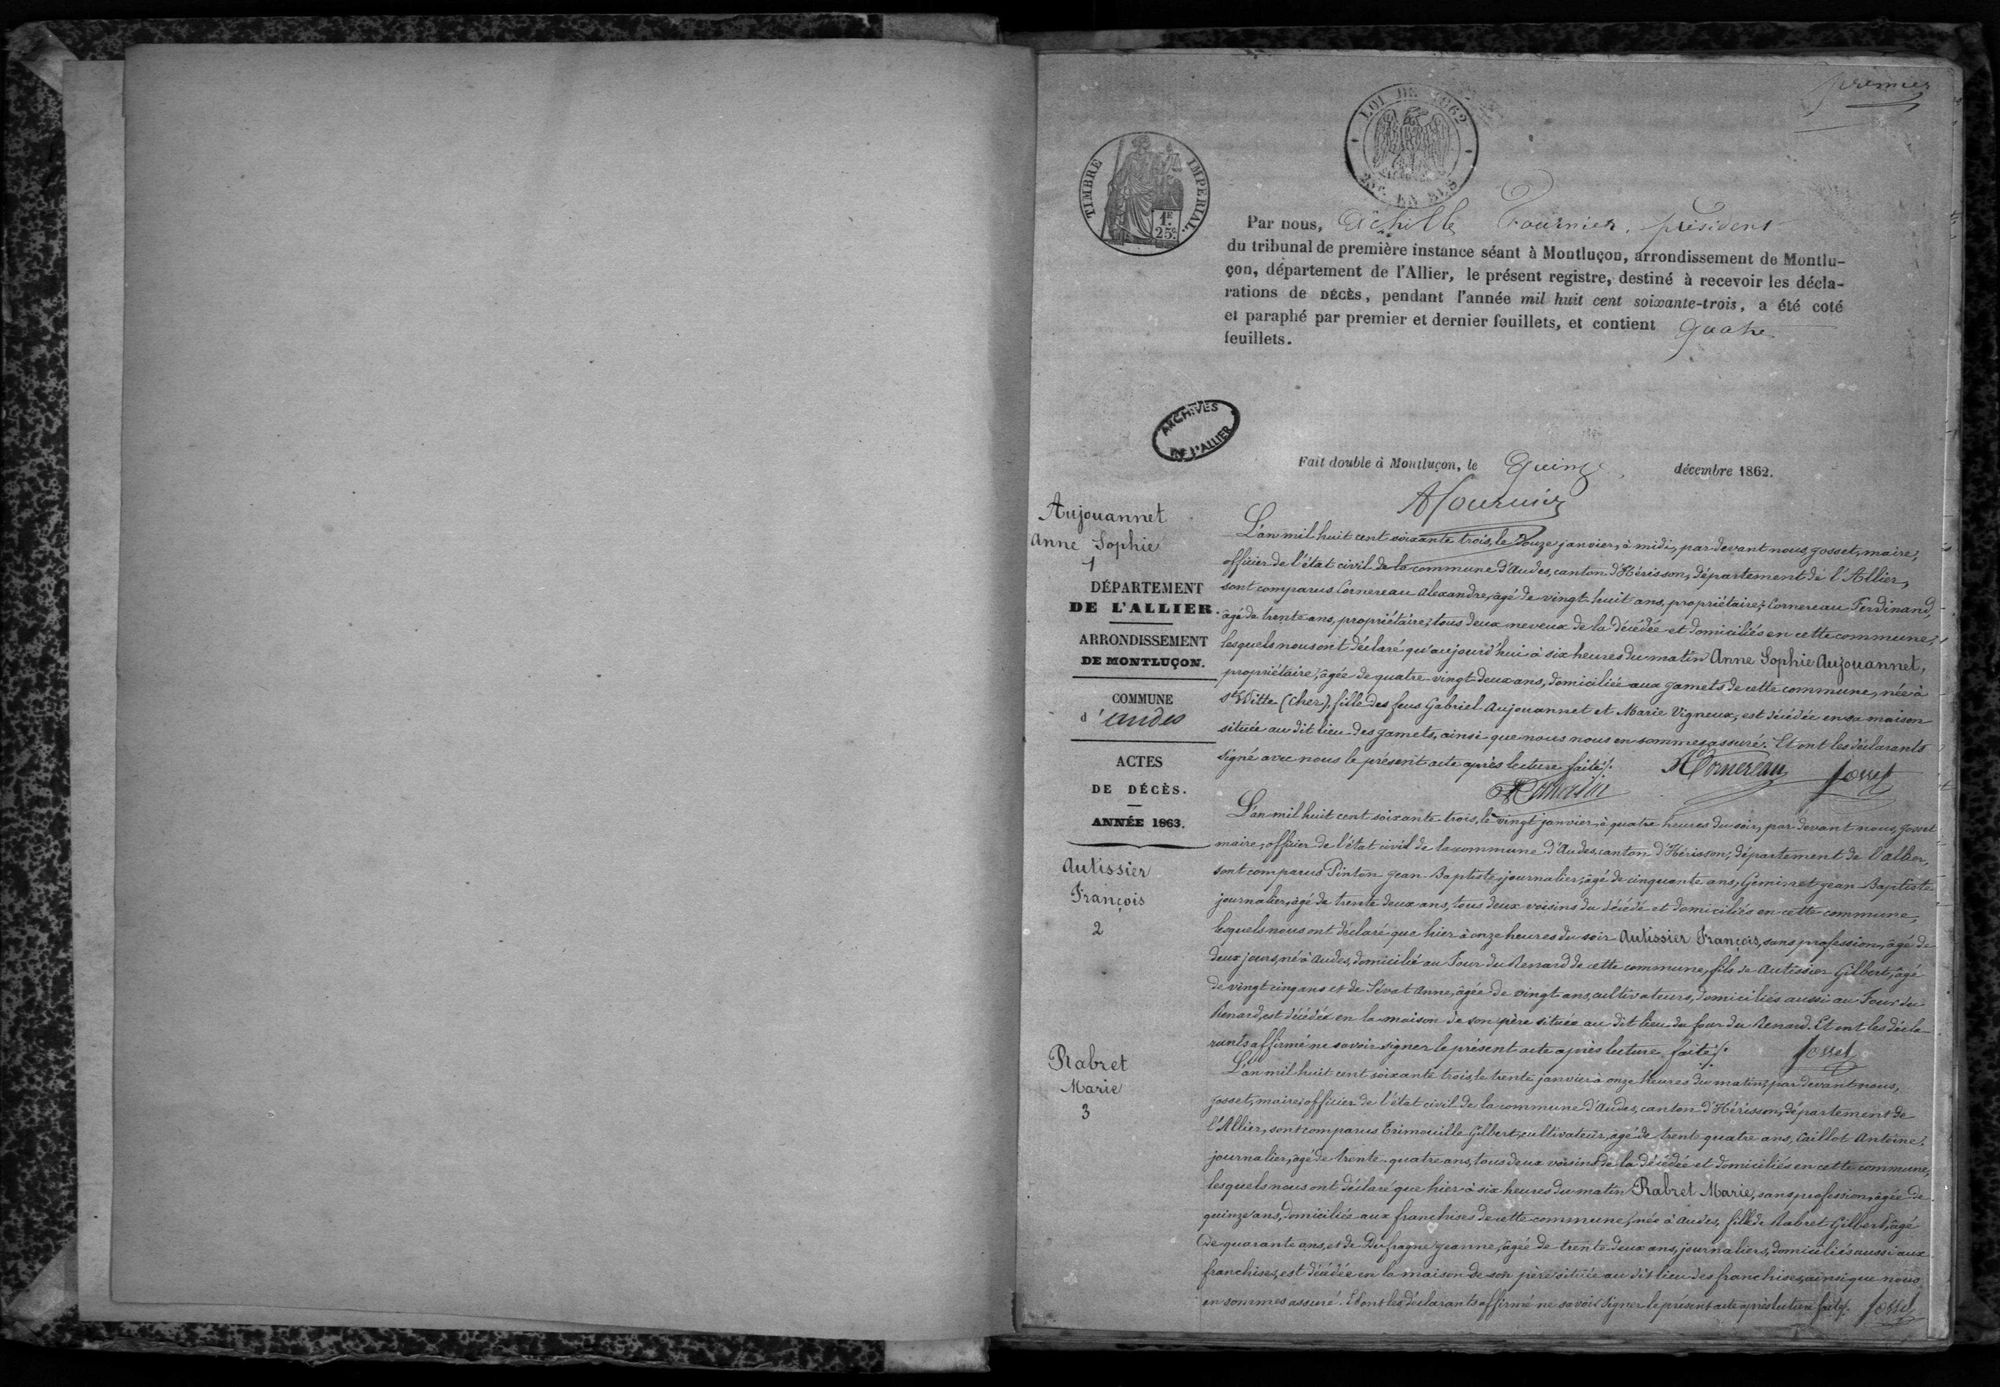 premier
LOI DE 1862
TIMBRE IMPERIAL
1F
25c
Par nous, Achille Fournier, président
du tribunal de première instance séant à Montluçon, arrondissement de Montlu-
çon, département de l'Allier, le présent registre, destiné à recevoir les décla-
rations de DÉCÈS, pendant l'année mil huit cent soixante-trois, a été coté
et paraphé par premier et dernier feuillets, et contient quatre
feuillets.
ARCHIVES
DE L'ALLIER
Fait double à Montluçon, le quinze décembre 1862.
AFournier
Aujouannet
Anne Sophie
1
DÉPARTEMENT
DE L'ALLIER.
ARRONDISSEMENT
DE MONTLUÇON.
COMMUNE
d'Audes
ACTES
DE DÉCÈS.
ANNÉE 1863.
L'an mil huit cent soixante trois, le douze janvier, à midi, par devant nous, gosset, maire,
officier de l'état civil de la commune d'Audes, canton d'Hérisson, département de l'Allier,
sont comparus Cornereau Alexandre, âgé de vingt huit ans, propriétaire; Cornereau Ferdinand,
âgé de trente ans, propriétaire; tous deux neveux de la décédée et domiciliés en cette commune,
lesquels nous ont déclaré qu'aujourd'hui à six heures du matin Anne Sophie Aujouannet,
propriétaire, âgée de quatre-vingt deux ans, domiciliée aux gamets de cette commune, née à
St Vitte (Cher), fille des feus Gabriel Aujouannet et Marie Vigneux, est décédée en sa maison
située au dit lieu des gamets, ainsi que nous nous en sommes assuré. Et ont les déclarants
signé avec nous le présent acte après lecture faite.
Cornereau Gosset
Autissier
François
2
L'an mil huit cent soixante trois, le vingt janvier à quatre heures du soir, par devant nous, gosset
maire, officier de l'état civil de la commune d'Audes, canton d'Hérisson, département de l'allier,
sont comparus Pinton jean Baptiste, journalier, âgé de cinquante ans, Geminet jean Baptiste
journalier, âgé de trente deux ans, tous deux voisins du décédé et domiciliés en cette commune,
lesquels nous ont déclaré que hier à onze heures du soir Autissier François, sans profession, âgé de
deux jours, né à Audes, domicilié au Four du Renard de cette commune, fils de Autissier Gilbert, âgé
de vingt cinq ans et de Sévat Anne, âgée de vingt ans, cultivateurs, domiciliés aussi au Four du
Renard, est décédé en la maison de son père située au dit lieu du four du Renard. Et ont les décla-
rants affirmé ne savoir signer le présent acte après lecture faite. Gosset
Rabret
Marie
3
L'an mil huit cent soixante trois, le trente janvier à onze heures du matin, par devant nous,
gosset, maire, officier de l'état civil de la commune d'Audes, canton d'Hérisson, département de
l'Allier, sont comparus Trimouille Gilbert, cultivateur, âgé de trente quatre ans, Caillot Antoine,
journalier, âgé de trente-quatre ans, tous deux voisins de la décédée et domiciliés en cette commune,
lesquels nous ont déclaré que hier à six heures du matin Rabret Marie, sans profession, âgée de
quinze ans, domiciliée aux franchises de cette commune, née à Audes, fille de Rabret Gilbert, âgé
de quarante ans, et de Dufragne jeanne, âgée de trente deux ans, journaliers, domiciliés aussi aux
franchises, est décédée en la maison de son père située au dit lieu des franchises, ainsi que nous
en sommes assuré. Et ont les déclarants affirmé ne savoir signer le présent acte après lecture faite. Gosset